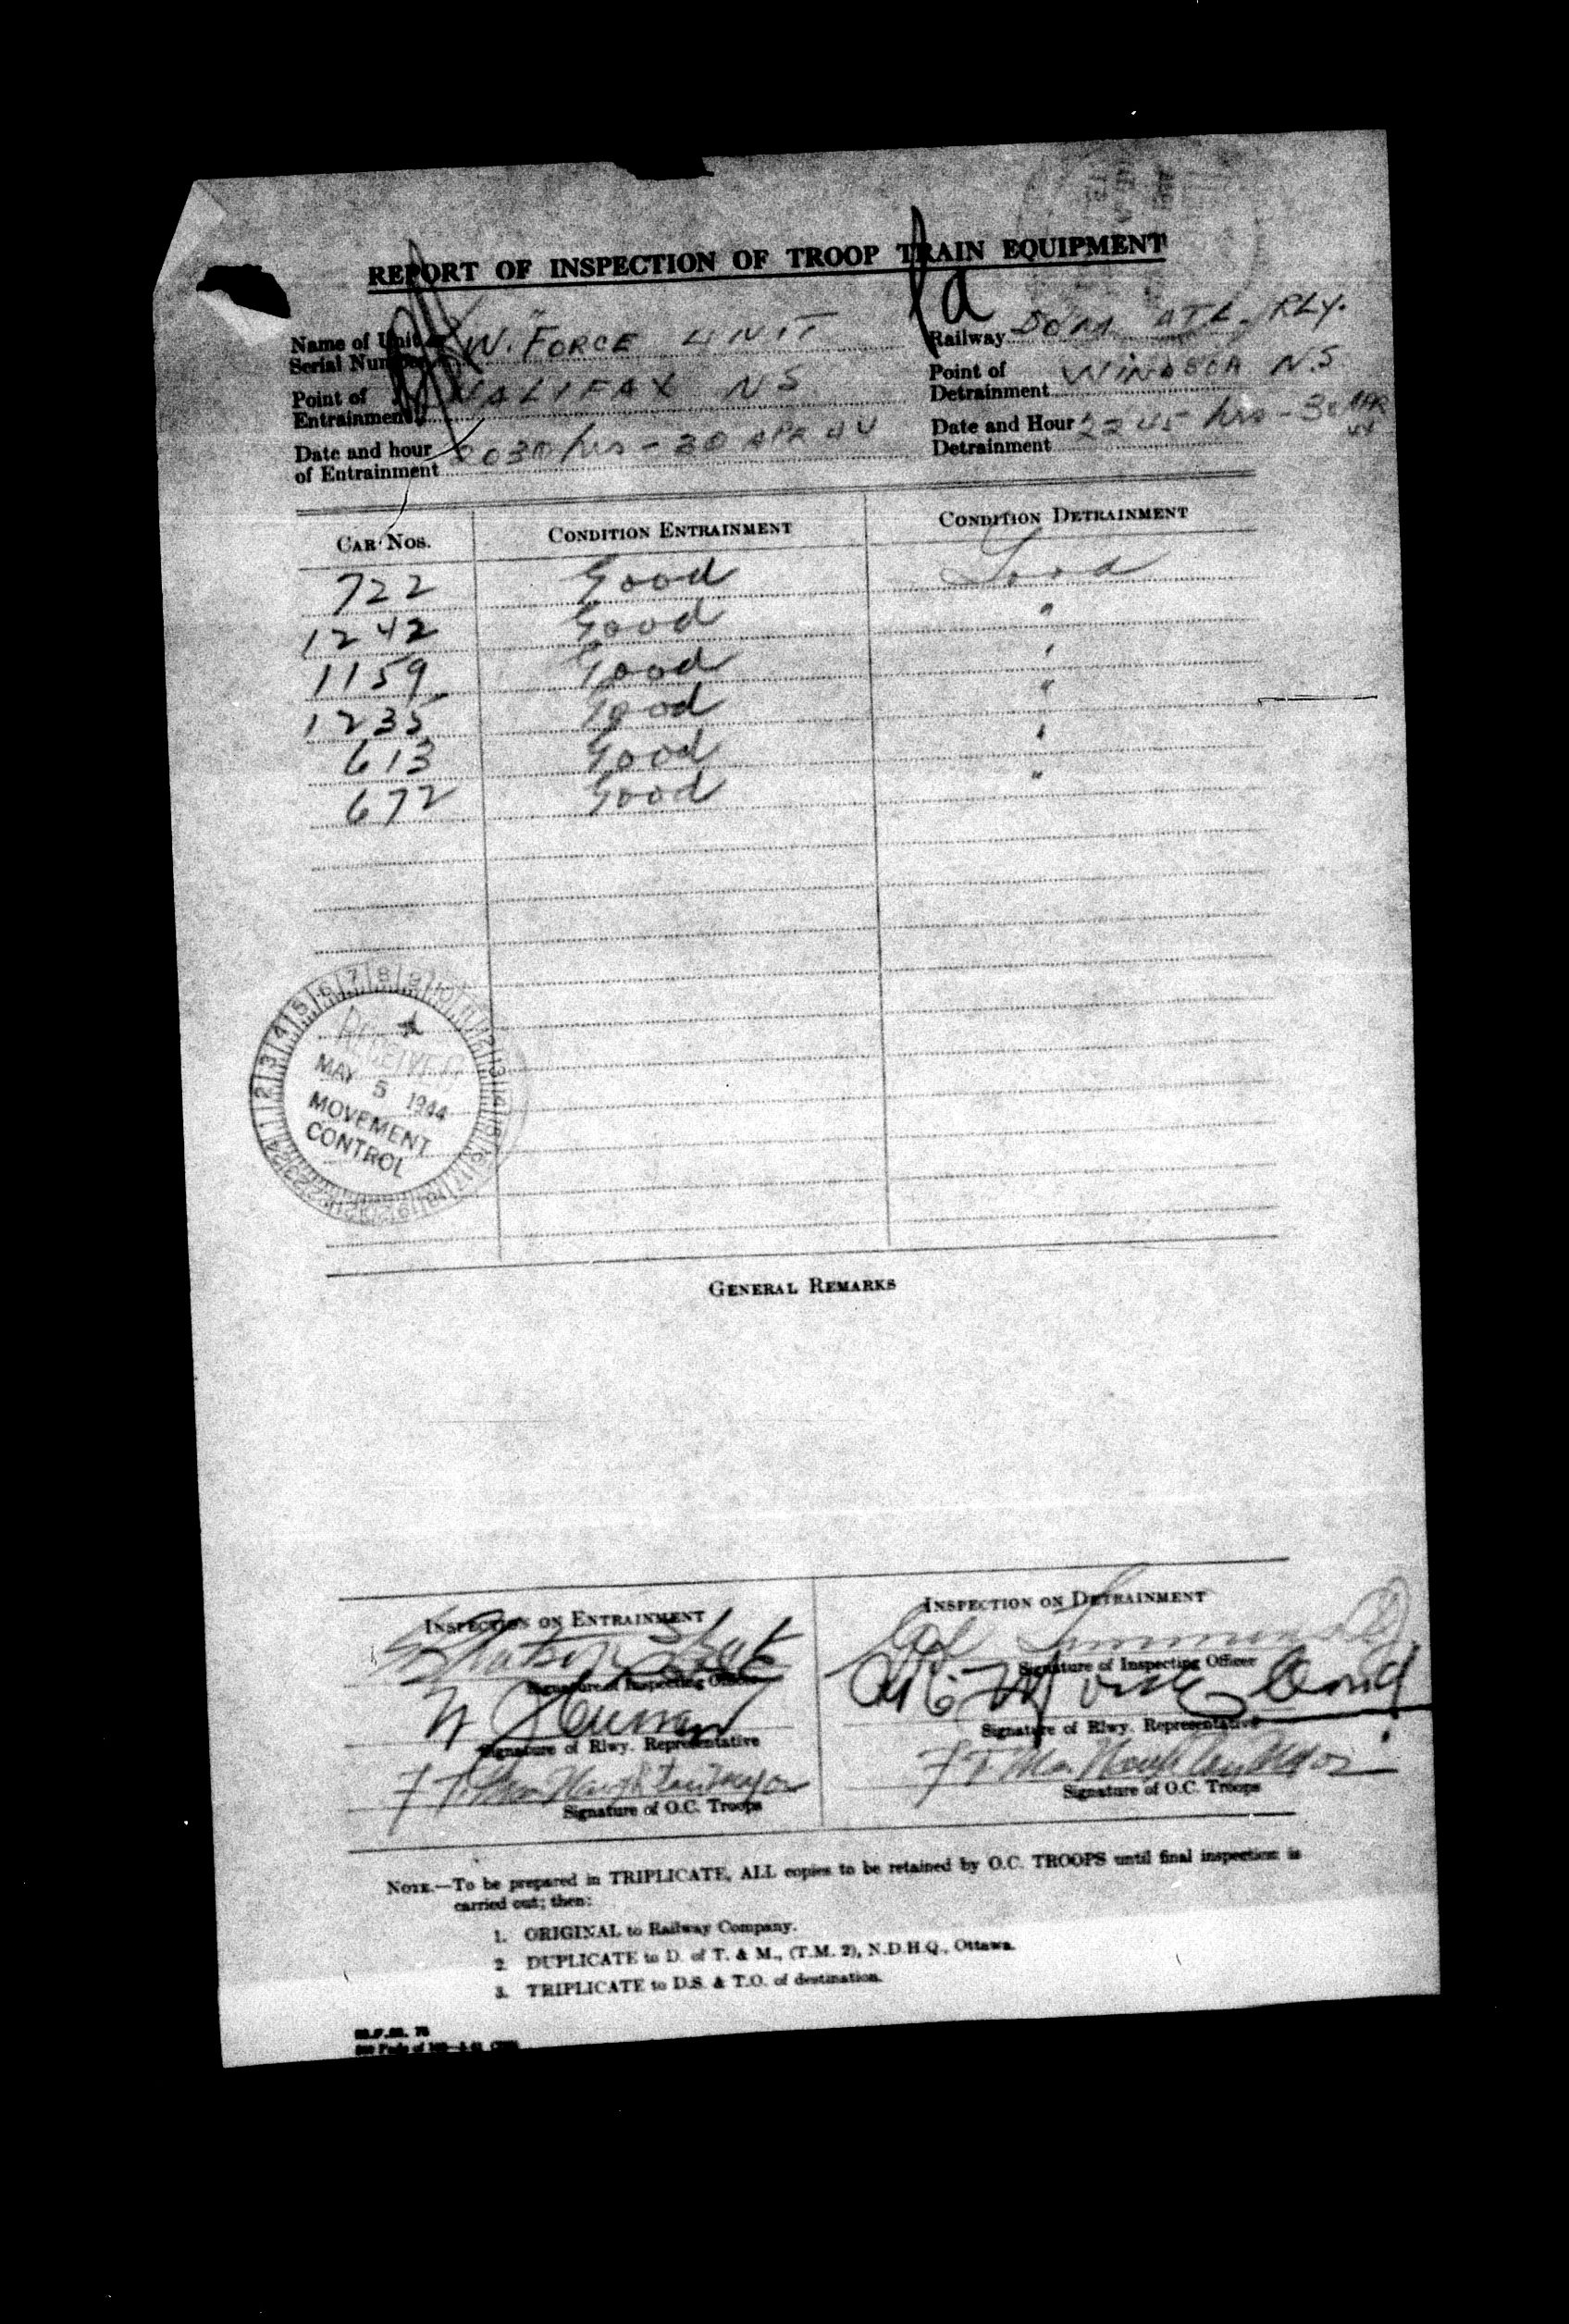 REPORT OF INSPECTION OF TROOP TRAIN EQUIPMENT
Name of Unit or Serial Number "W" FORCE UNIT
Railway DOM. ATL. RLY.
Point of Entrainment HALIFAX NS
Point of Detrainment WINDSOR N.S
Date and hour of Entrainment 2030 hrs - 30 APR 44
Date and Hour Detrainment 2245 hrs - 30 APR 44
CAR NOS. CONDITION ENTRAINMENT CONDITION DETRAINMENT
722 Good Good
1242 Good "
1159 Good "
1235 Good "
613 Good "
672 Good "
RECEIVED
MAY 5 1944
MOVEMENT
CONTROL
GENERAL REMARKS
INSPECTION ON ENTRAINMENT
Signature of Inspecting Officer
Signature of Rlwy. Representative
Major
Signature of O.C. Troops
INSPECTION ON DETRAINMENT
Signature of Inspecting Officer
Signature of Rlwy. Representative
Major
Signature of O.C. Troops
NOTE.—To be prepared in TRIPLICATE, ALL copies to be retained by O.C. TROOPS until final inspection is
carried out; then:
1. ORIGINAL to Railway Company.
2. DUPLICATE to D. of T. & M., (T.M. 2), N.D.H.Q., Ottawa.
3. TRIPLICATE to D.S. & T.O. of destination.